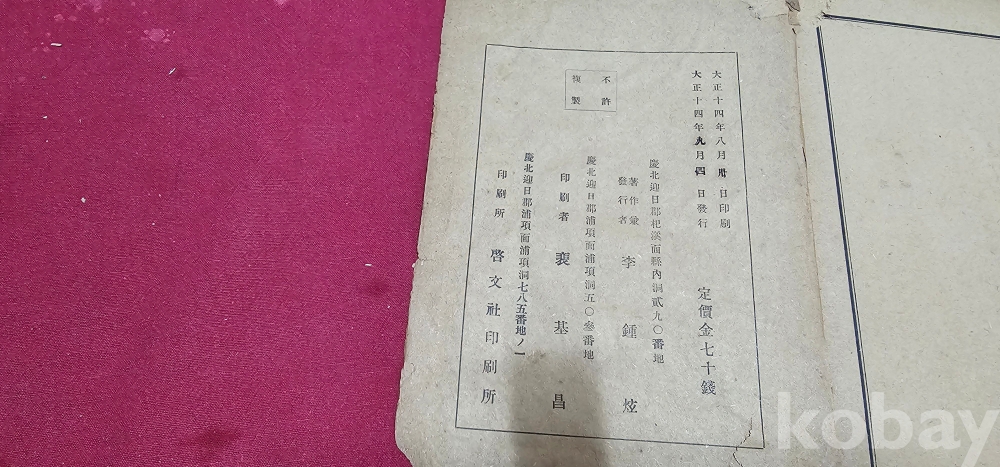 大正十四年八月卅日印刷
大正十四年九月四日發行
定價金七十錢
不許
複製
慶北迎日郡杞溪面縣內洞貳九〇番地
著作兼
發行者
李鍾炫
慶北迎日郡浦項面浦項洞五〇參番地
印刷者 裵基昌
慶北迎日郡浦項面浦項洞七八五番地ノ一
印刷所 啓文社印刷所
kobay